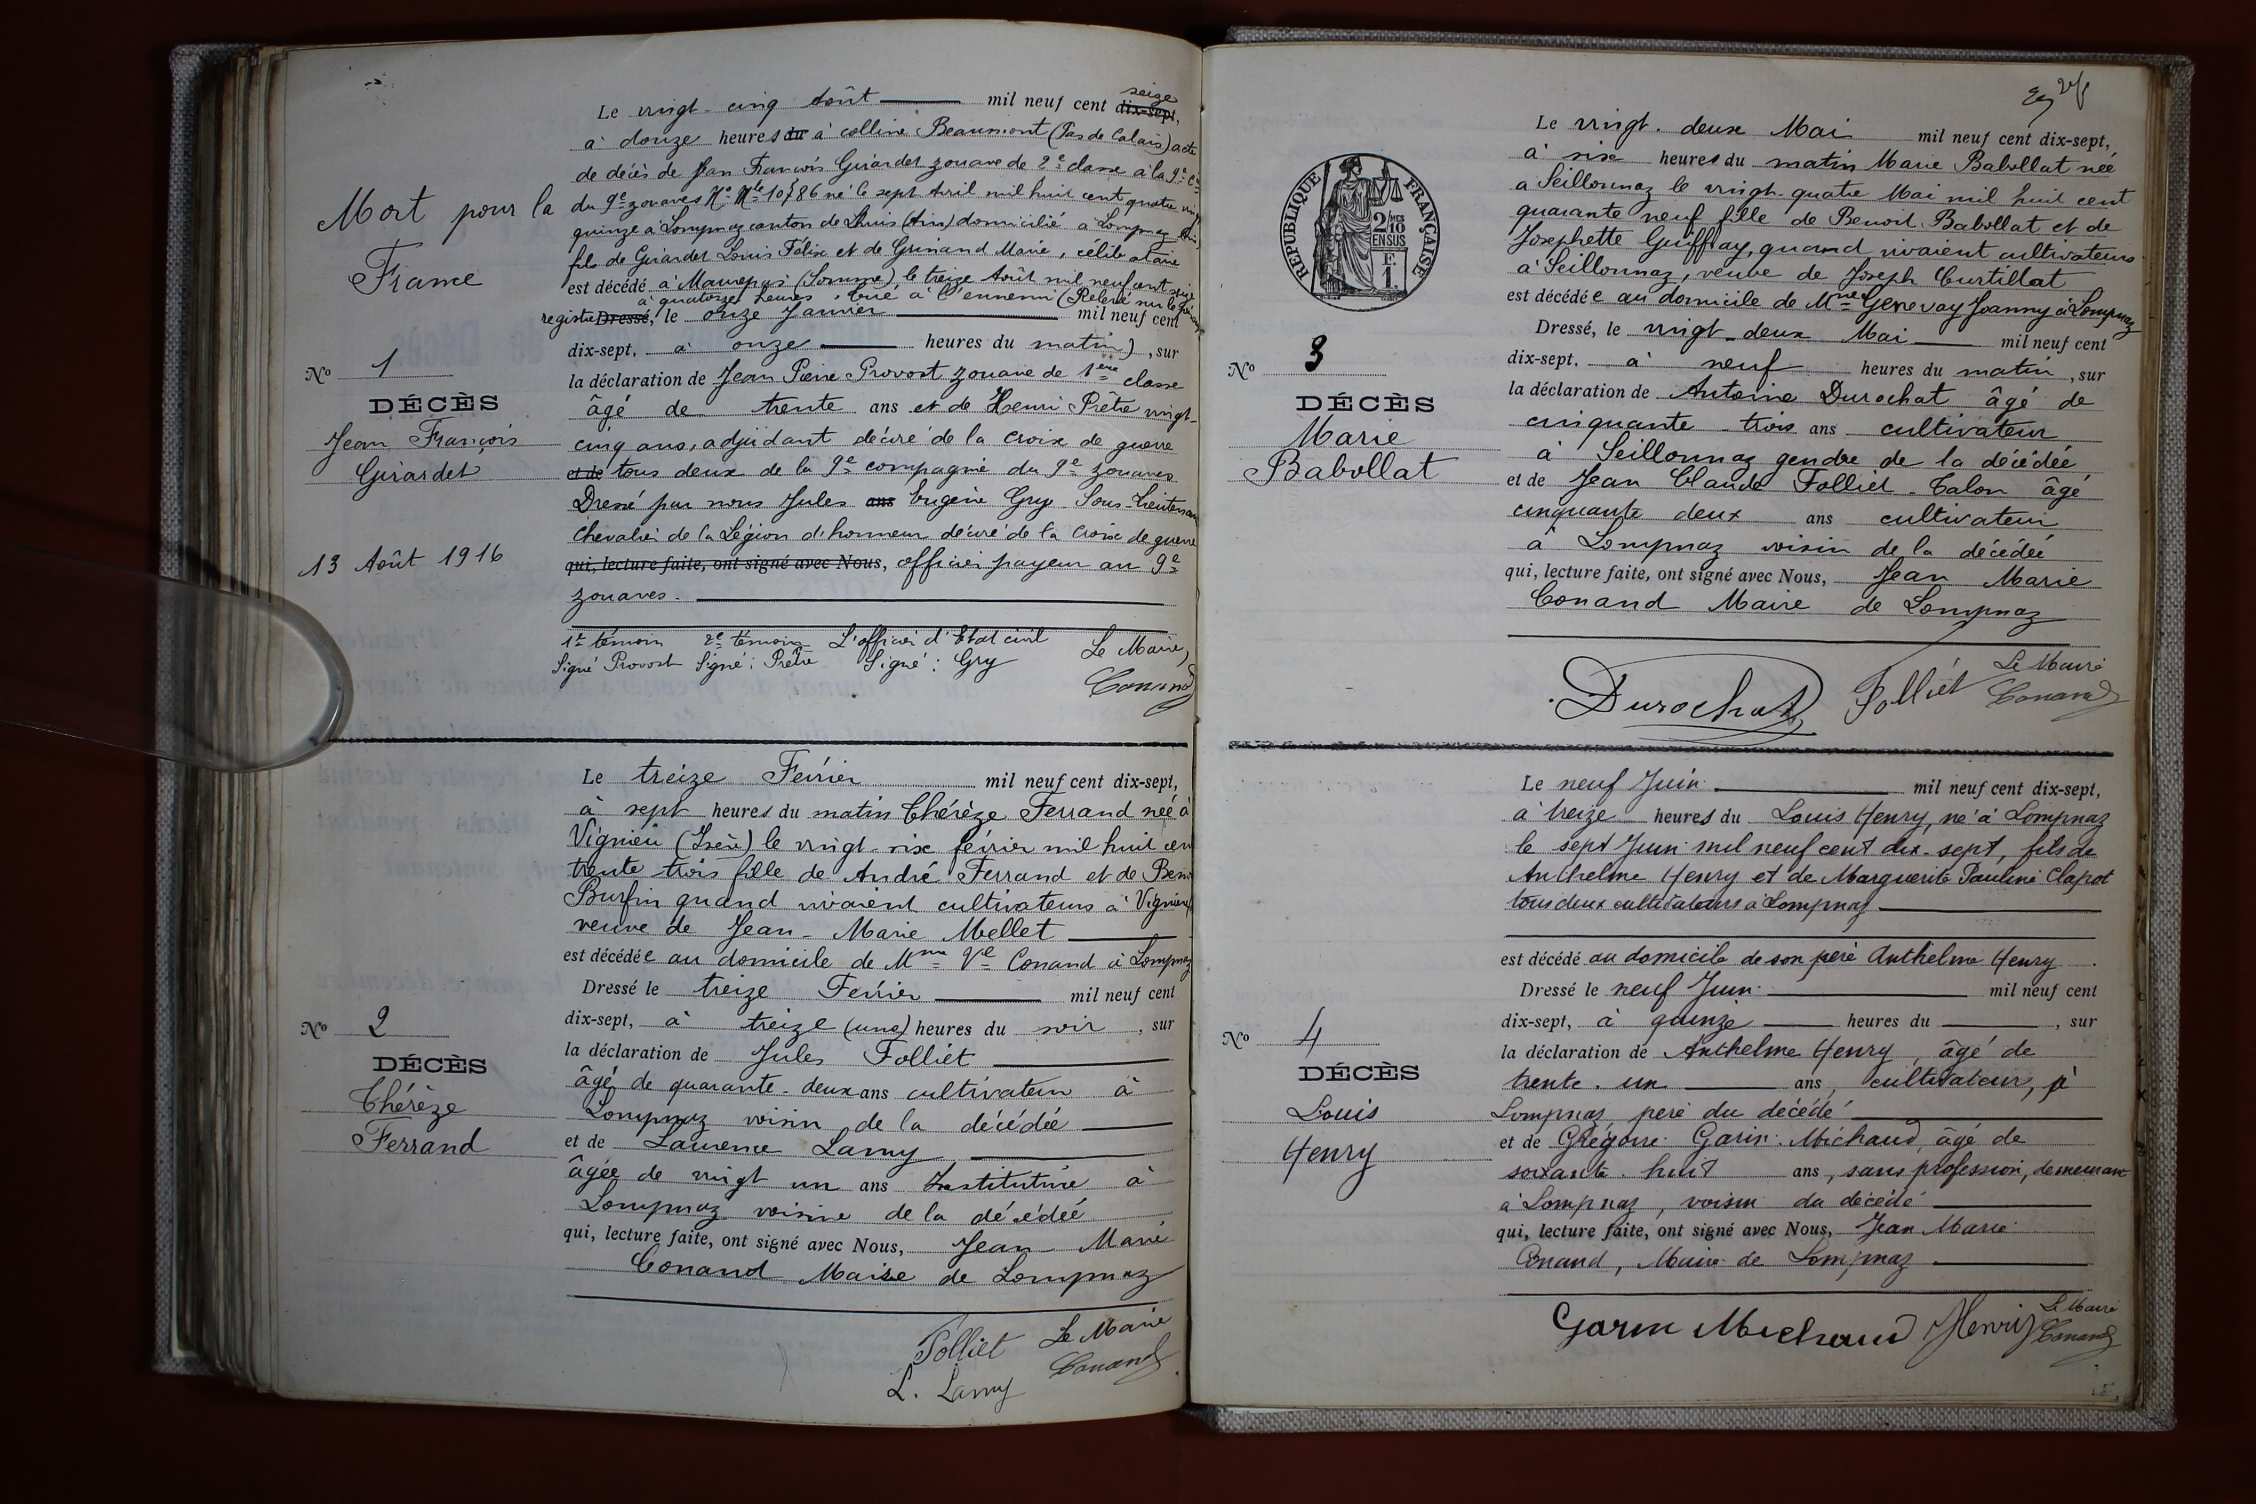 Le vingt-cinq Août mil neuf cent dix-sept, seize
à douze heures du à colline Beaumont (Pas de Calais) acte
de décès de Jean François Girardet zouave de 2e classe à la 9e Cie
Mort pour la
France
du 9e zouaves No Mle 10786 né le sept Avril mil huit cent quatre vingt
quinze à Lompnaz canton de Lhuis (Ain) domicilié à Lompnaz
fils de Girardet Louis Félix et de Guinand Marie, célibataire
est décédé à Maurepas (Somme), le treize Août mil neuf cent seize
à quatorze heures, tué à l'ennemi (Relevé sur le
registre Dressé, le onze Janvier mil neuf cent
dix-sept, à onze heures du matin), sur
No 1
DÉCÈS
Jean François
Girardet
13 Août 1916
la déclaration de Jean Pierre Provost zouave de 1ère classe
âgé de trente ans et de Henri Prêtre vingt-
cinq ans, adjudant décoré de la croix de guerre
et de tous deux de la 9e compagnie du 9e zouaves
Dressé par nous Jules ans Eugène Gry Sous-lieutenant
Chevalier de la Légion d'honneur décoré de la croix de guerre
qui, lecture faite, ont signé avec Nous, officier payeur au 9e
zouaves.
1er témoin 2e témoin L'officier d'Etat civil Le Maire,
Signé Provost Signé: Prêtre Signé: Gry Conand
Le treize Février mil neuf cent dix-sept,
à sept heures du matin Thérèze Ferrand née à
Vignieu (Isère) le vingt-six février mil huit cent
trente trois fille de André Ferrand et de
Burfin quand vivaient cultivateurs à Vignieu
veuve de Jean-Marie Mellet
est décédée au domicile de Mme Vve Conand à Lompnaz
Dressé le treize Février mil neuf cent
dix-sept, à treize (une) heures du soir, sur
No 2
DÉCÈS
Thérèze
Ferrand
la déclaration de Jules Folliet
âgé de quarante-deux ans cultivateur à
Lompnaz voisin de la décédée
et de Laurence Lamy
âgée de vingt un ans Institutrice à
Lompnaz voisine de la décédée
qui, lecture faite, ont signé avec Nous, Jean Marie
Conand Maire de Lompnaz
Folliet Le Maire
L. Lamy Conand
Le vingt-deux Mai mil neuf cent dix-sept,
à six heures du matin Marie Babollat née
à Seillonnaz le vingt-quatre Mai mil huit cent
quarante neuf fille de Benoit Babollat et de
Josephette Guiffray, quand vivaient cultivateurs
à Seillonnaz, veuve de Joseph Curtillat
est décédée au domicile de Mme Genevay Joanny à Lompnaz
RÉPUBLIQUE FRANÇAISE
2/10 EN SUS
1 F.
Dressé, le vingt-deux Mai mil neuf cent
dix-sept, à neuf heures du matin, sur
No 3
DÉCÈS
Marie
Babollat
la déclaration de Antoine Durochat âgé de
cinquante-trois ans cultivateur
à Seillonnaz gendre de la décédée
et de Jean Claude Folliet-Talon âgé
cinquante deux ans cultivateur
à Lompnaz voisin de la décédée
qui, lecture faite, ont signé avec Nous, Jean Marie
Conand Maire de Lompnaz
Durochat Folliet Le Maire
Conand
Le neuf Juin mil neuf cent dix-sept,
à treize heures du Louis Henry, né à Lompnaz
le sept Juin mil neuf cent dix-sept, fils de
Anthelme Henry et de Marguerite Pauline Clapot
tous deux cultivateurs à Lompnaz
est décédé au domicile de son père Anthelme Henry.
Dressé le neuf Juin mil neuf cent
dix-sept, à quinze heures du, sur
No 4
DÉCÈS
Louis
Henry
la déclaration de Anthelme Henry, âgé de
trente-un ans, cultivateur, à
Lompnaz père du décédé
et de Grégoire Garin-Michaud, âgé de
soixante-huit ans, sans profession, demeurant
à Lompnaz, voisin du décédé
qui, lecture faite, ont signé avec Nous, Jean Marie
Conand, Maire de Lompnaz
Garin Michaud Henry Le Maire
Conand